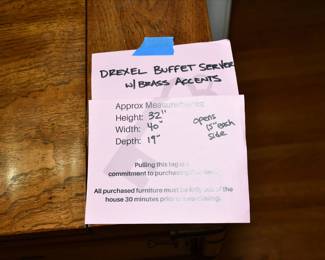 DREXEL BUFFET SERVER
W/ BRASS ACCENTS
Approx Measurements
Height: 32"
Width: 40"
Depth: 19"
opens
15" each
side
Pulling this tag is a
commitment to purchasing
All purchased furniture must be fully out of the
house 30 minutes prior to closing.